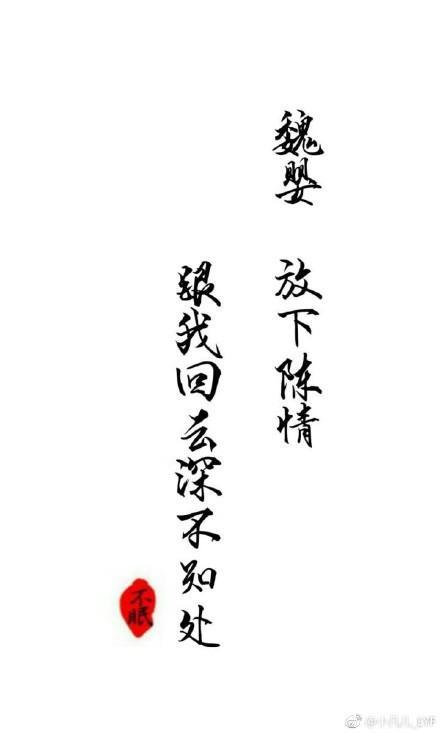 魏婴 放下陈情
跟我回去深不知处
不眠
@小凡儿_GYF